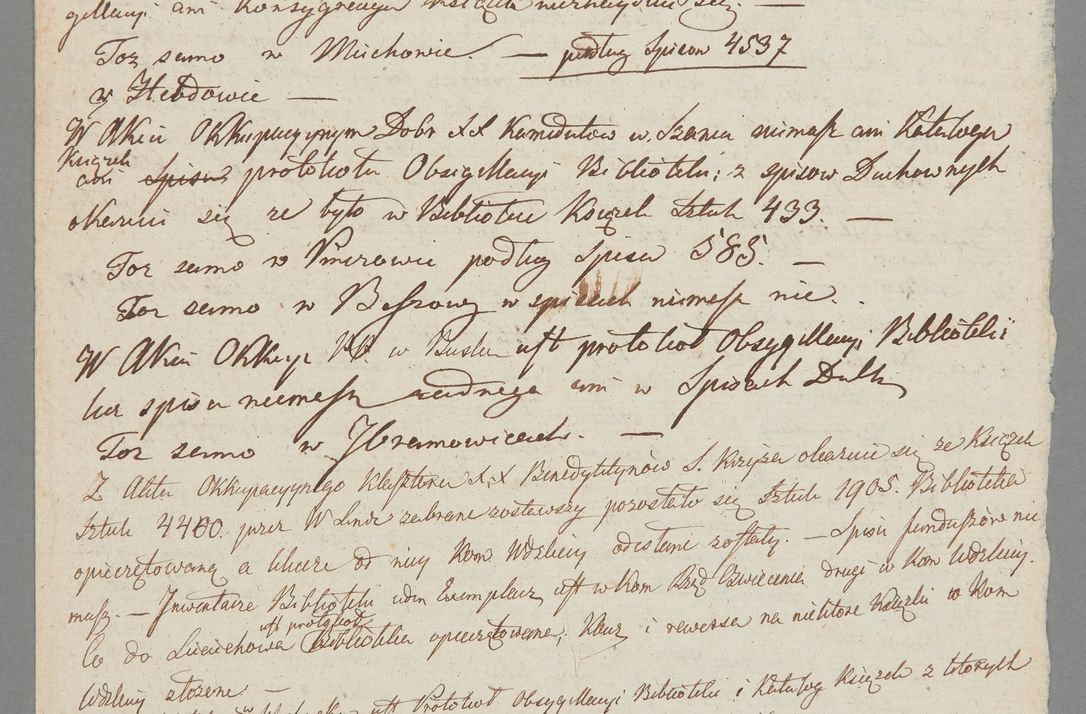 gillacyi ani Konsygnacyi
Toż samo w Miechowie. — podług Spisow 4537
w Hebdowie —
W Akcie Okkupacyinym Dobr XX Kanidułow w Szaniu niemasz ani Katalogu
Książek
ani protokołu Obsygillacyi Biblioteki; z spisow Duchownych
okazuie się ze było w Bibliotece Książek Sztuk 433. —
Toż samo w Pinczowie podług Spisu 585. —
Toż samo w Beszowy w spisach niemasz nic.
W Akcie Okkup: w Busku iest protokoł Obsygillacyi Biblioteki
lecz spisu niemasz żadnego ani w Spisach Duch
Toż samo w Jbramowicach. —
Z Aktu Okkupacyinego Klasztoru XX Benedyktynów S. Krzyża okazuie się ze Książek
Sztuk 4400. przez W Linde zabrane zostawszy pozostało się Sztuk 1905. Biblioteka
opieczętowaną a klucze od niey Kom Wdzkiey odesłane zostały. — Spisu funduszów nie
masz. — Jnwentarze Biblioteki ieden Exemplarz iest w Kom Rząd Oświecenia drugi w Kom Wdzkiey.
iest protokoł
Co do Sieciechowa Biblioteka opieczętowana, Klucz i rewersa na niektore Książki w Kom
Wdzkiey złożone —
iest Protokoł Obsygillacyi Biblioteki i Katalog Książek z ktorych